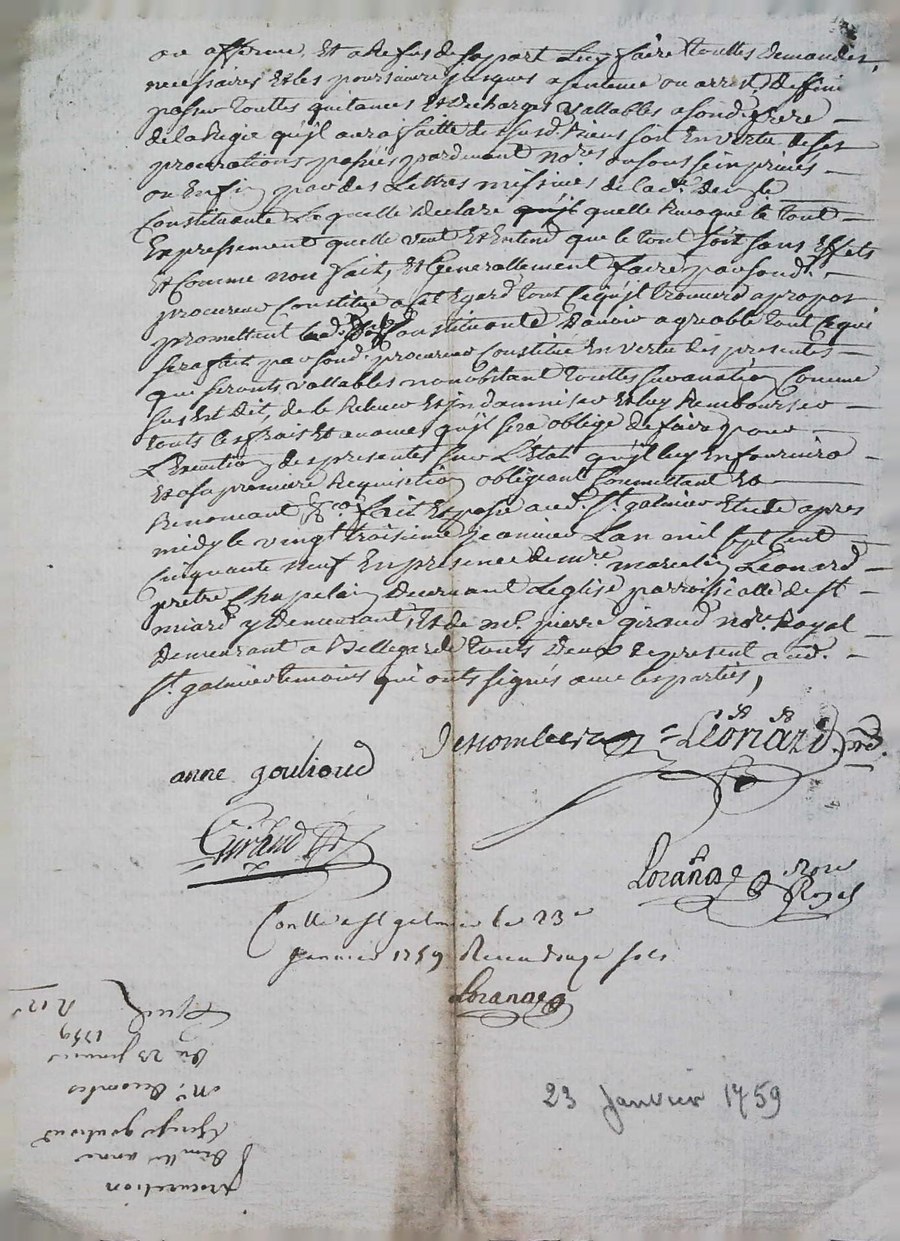 ou afferme, Et a Refus de sa part Luy faire touttes demandes
necessaires Et les poursuivre jusques a sentence ou arrest deffini
passer touttes quitances Et decharges vallables a sond. frere
de la Regie qu'il aura faitte de susd. biens soit En vertu de ses
procurations passées pardevant no.res ou sous sein privés
ou Enfin par des Lettres missives de lad.
Constituante Laquelle declare quelle Revoque le tout
Expressement quelle veut Et Entend que le tout soit sans Effets
Et Comme non fait, Et Generallement faire par sond.
procureur Constitué a cet Egard tout Ce qu'jl trouvera apropos
promettant Constituante d'avoir agreable tout Ce qui
sera fait par sond. procureur Constitué En vertu des presentes
que seronts vallables nonobstant touttes Comme
sus Est dit, de le Relever Et jndamniser Et luy Rembourser
touts les frais Et avances qu'jl sera obligé de faire pour
L'Execution des presentes sur L'Etat qu'jl luy En fournira
Et a sa premiere Requisition obligeant soumettant Et
Renonçant &.a fait Et passé aud. St. galmier Etude apres
midy le vingt troisieme jeanvier L'an mil sept cent
Cinquante neuf En presence de mre. marcelin Léonard
prêtre Chapelain decernant L'eglise parroissialle de St
miard y demeurant, Et de me. pierre giraud no.re Royal
demeurant a Bellegarde touts deux de present aud.
St. galmier temoins qui onts signés avec les parties,
Descombes Léonard
anne goulioud
Giraud
Lorange Nore
Royal
Conllé a St galmier le 23e
Janvier 1759 Receu douze sols
Lorange
23 Janvier 1759
procuration
Demlle anne
goulioud
Mr. Decombes
Du 23 janvier
1759
R 12s